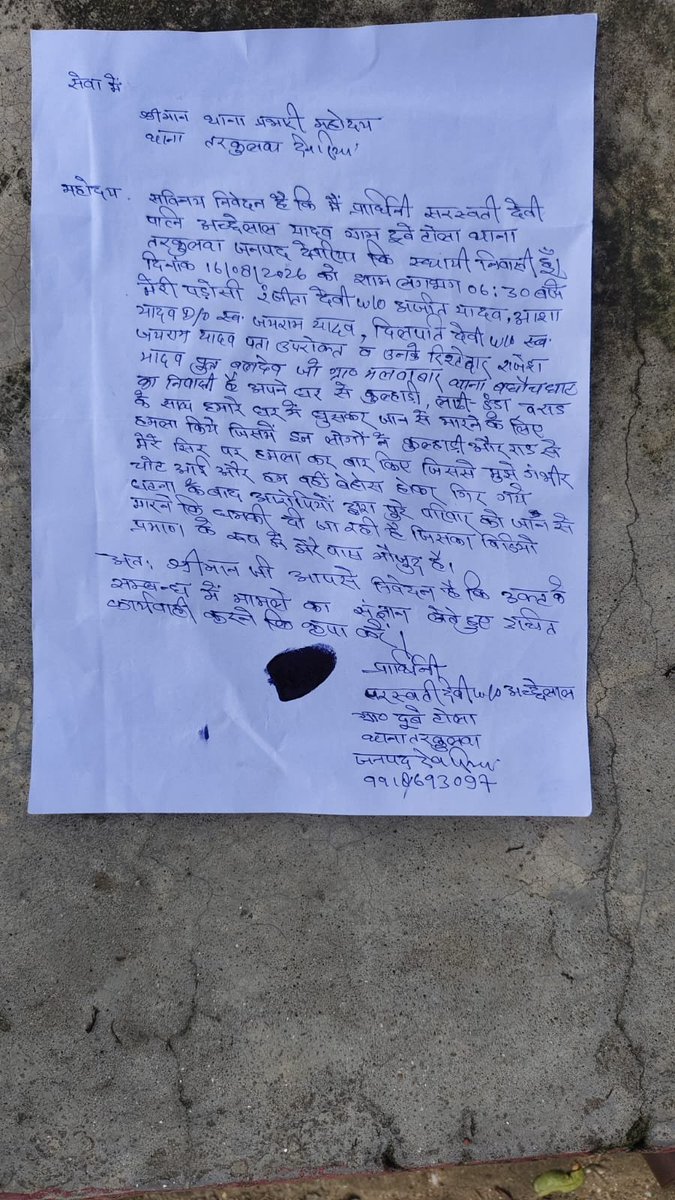 सेवा में
श्रीमान थाना प्रभारी महोदय
थाना तरकुलवा देवरिया
महोदय सविनय निवेदन है कि मैं प्रार्थिनी सरस्वती देवी
पत्नि अच्छेलाल यादव ग्राम दुबे टोला थाना
तरकुलवा जनपद देवरिया कि स्थायी निवासी हूँ।
दिनांक 16/08/2026 को शाम लगभग 06:30 बजे
मेरी पड़ोसी रंजीता देवी w/o अजीत यादव, आशा
यादव D/o स्व. जयराम यादव, दिलपति देवी w/o स्व.
जयराम यादव पता उपरोक्त व उनके रिश्तेदार राजेश
यादव पुत्र बलदेव जी ग्रा० मलवाबार थाना बघौचघाट
का निवासी है अपने घर से कुल्हाडी, लाठी डंडा व राड
के साथ हमारे घर में घुसकर जान से मारने के लिए
हमला किये जिसमें इन लोगों ने कुल्हाडी और राड से
मेरे सिर पर हमला कर वार किए जिससे मुझे गंभीर
चोट आई और हम वहीं बेहोश होकर गिर गये
घटना के बाद आरोपियों द्वारा पुरे परिवार को जान से
मारने कि धमकी दी जा रही है जिसका विडियो
प्रमाण के रूप में मेरे पास मौजुद है।
अतः श्रीमान जी आपसे निवेदन है कि उक्त के
सम्बन्ध में मामले का संज्ञान लेते हुए उचित
कार्यवाही करने कि कृपा करें।
प्रार्थिनी
सरस्वती देवी w/o अच्छेलाल
ग्रा० दुबे टोला
थाना तरकुलवा
जनपद देवरिया